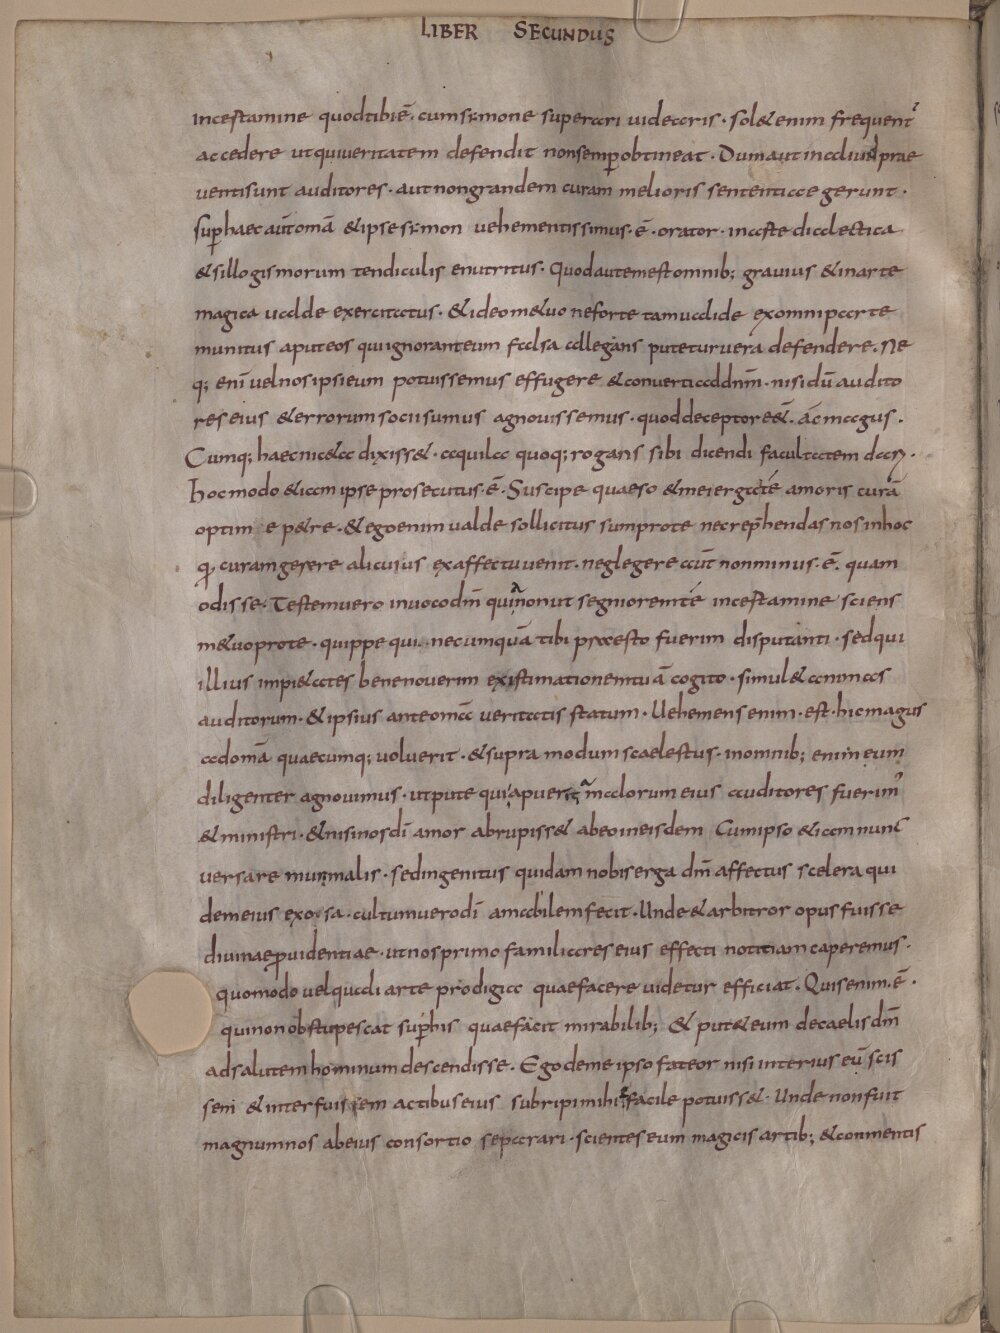 LIBER SECUNDUS
incertamine quodtibiē. cumsimone superari uideris · sol&enim frequent̉
accedere utquiueritatem defendit nonsemꝑobtineat · Dumaut inaliud prae
uentisunt auditores · autnongrandem curam melioris sententiae gerunt ·
suꝑhaec aūtomā &ipse simon uehementissimus · ē · orator · inarte dialectica
&sillogismorum tendiculis enutritus · Quodautemestomnib; grauius &inarte
magica ualde exercitatus · &ideom&uo neforte tamualide exomniparte
munitus aputeos quiignoranteum falsa allegans puteturuera defendere. Ne
q; enī uelnosipsieum potuissemus effugere &conuertiaddn̄m · nisidū audito
reseius &errorumsociisumus agnouissemus · quoddeceptoreēt. ac magus.
Cumq; haecnic&a dixiss& · aquila quoq; rogans sibi dicendi facultatem dari ·
hocmodo &iam ipseprosecutus · ē · Suscipe quaeso &meiergate amoris curā
optim e p&re · &egoenim ualde sollicitus sumprote necrep̄hendasnosinhoc
qꝫ curamgerere alicuius exaffectuuenit · neglegere aut̄ nonminus · ē. quam
odisse · Testemuero inuocodm̄ quianonut segnioremte incertamine sciens
m&uoprote · quippe qui necumquā tibi praesto fuerim disputanti · sedqui
illius impi&ates benenouerim existimationemtuā cogito · simul&animas
auditorum · &ipsius anteomā ueritatis statum · Uehemens enim · est · hicmagus
adomā quaecumq; uoluerit · &supra modum scaelestus · inomnib; enim eum
diligenter agnouimus · utpute quiapueritiā malorum eius auditores fuerim̉
&ministri · &nisinosdī amor abrupiss& abeoineisdem Cumipso &iam nunc
uersare mur malis · sedingenitus quidam nobiserga dm̄ affectus scelera qui
demeius exosa · cultumuerodī amabilemfecit · Unde&arbitror opusfuisse
diuinaeꝓuidentiae · utnosprimo familiareseius effecti notitiam caperemus ·
quomodo uelquali arte prodigia quaefacere uidetur efficiat. Quisenim · ē ·
quinonobstupescat suꝑhis quaefacit mirabilib; & put&eum decaelisdm̄
adsalutemhominumdescendisse · Egodeme ipso fateor nisi interius eū scis
sem &interfuissem actibuseius subripimihi facile potuiss& · Unde nonfuit
magnumnos abeius consortio separari · scienteseum magicis artib; &conmentis